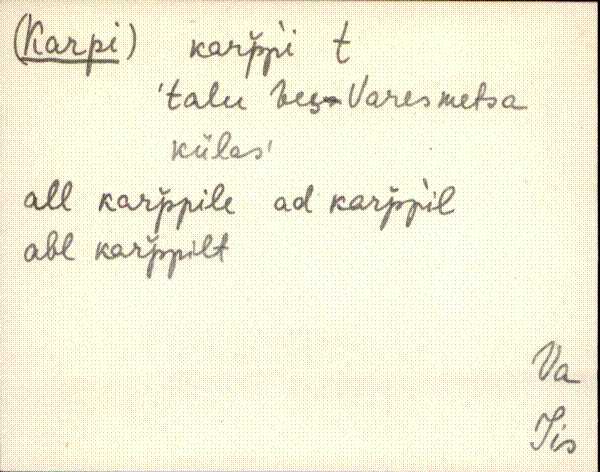 (Karpi) kar̆pp̀i t
'talu Varesmetsa
külas'
all kar̆ppile ad kar̆pp̀il
abl kar̆ppilt
Va
Jis